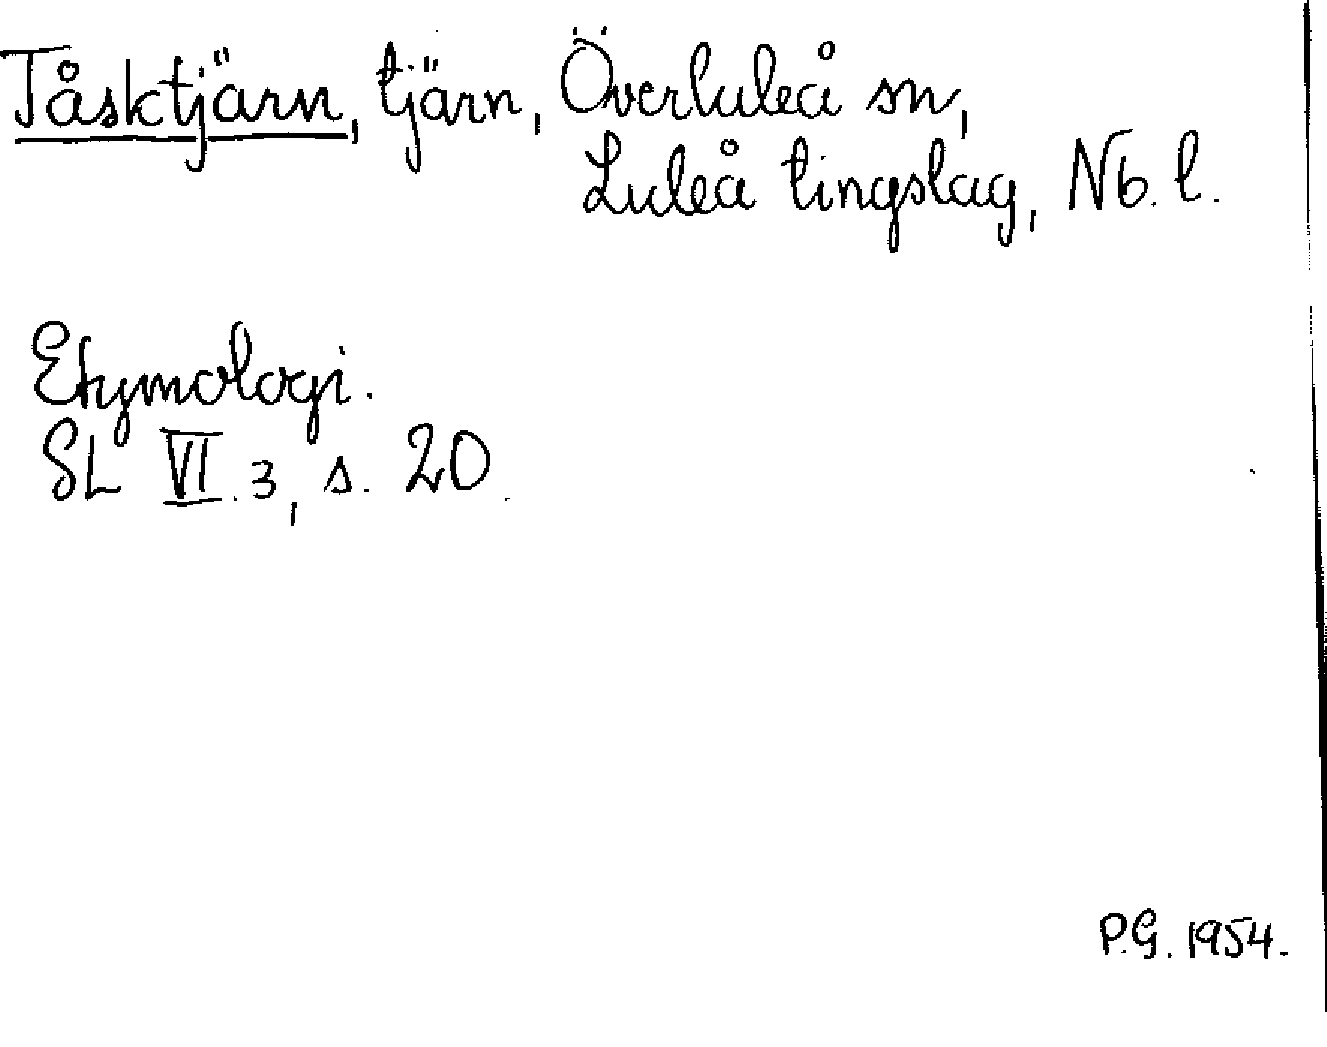 Tåsktjärn, tjärn, Överluleå sn,
Luleå tingslag, Nb. l.
Etymologi.
SL VI. 3, s. 20.
P.G. 1954.